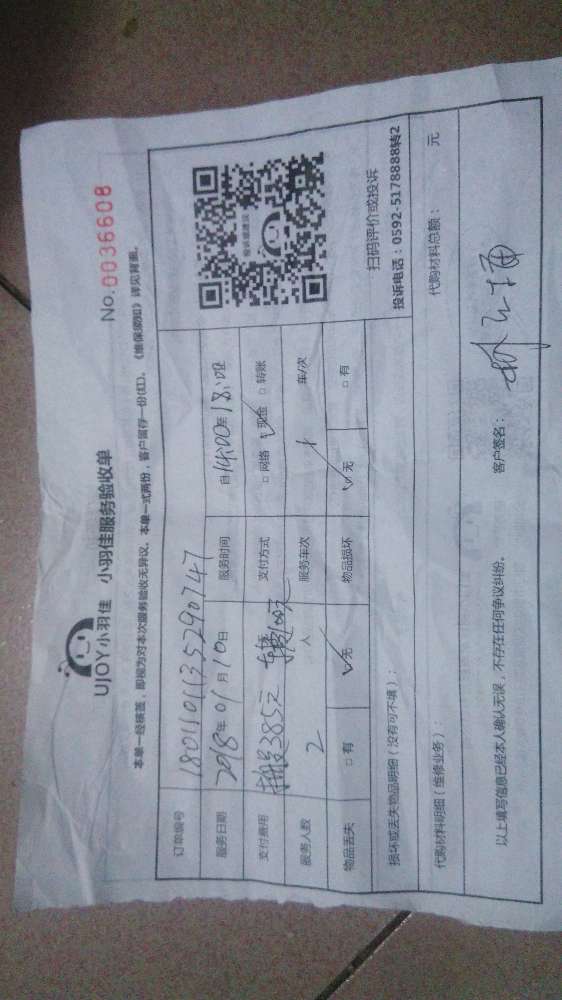 UJOY小羽佳 小羽佳服务验收单
No.0036608
本单一经核签，即视为对本次服务验收无异议。本单一式两份，客户留存一份(红)。《维保须知》详见背面。
订单编号 1801101135290747
服务日期 2018年01月10日 服务时间 自14:00至18:00
支付费用 385元 100元 支付方式 □网络 ☑现金 □转账
服务人数 2 人 服务车次 1 车/次
物品丢失 □有 ☑无 物品损坏 ☑无 □有
投诉或建议
扫码评价或投诉
投诉电话：0592-5178888转2
损坏或丢失物品明细（没有可不填）：
代购材料明细（维修业务）： 代购材料总额： 元
以上填写信息已经本人确认无误，不存在任何争议纠纷。 客户签名：